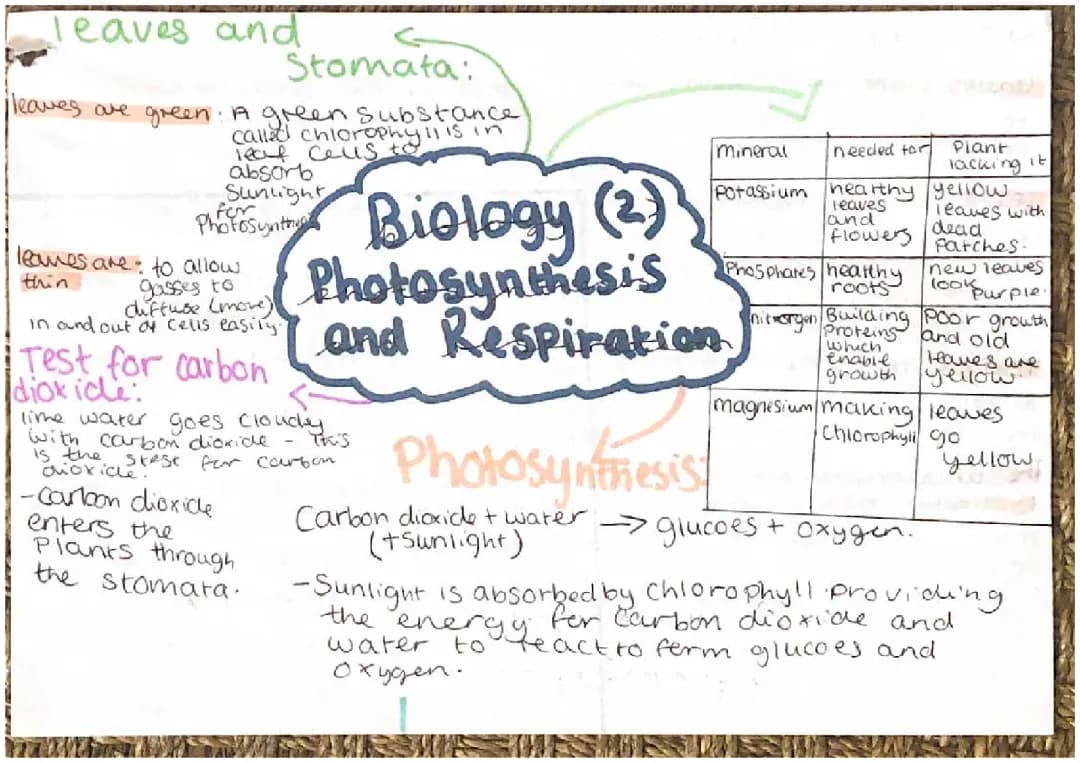 leaves and
Stomata:
leaves are green: A green substance
called chlorophyll is in
leaf cells to
absorb
Sunlight
for
leaves are: to allow
thin gasses to
diffuse (move)
in and out of cells easily.
Test for carbon
dioxide:
lime water goes cloudy
with carbon dioxide - this
is the stest for carbon
dioxide.
-Carbon dioxide
enters the
Plants through
the stomata.
Biology (2)
Photosynthesis
and Respiration
mineral needed for Plant
lacking it
Potassium healthy yellow
leaves leaves with
and dead
flowers Patches.
Phosphates healthy new leaves
roots look
purple.
nitrogen Building Poor growth
Proteins and old
which leaves are
enable yellow
growth
magnesium making leaves
Chlorophyll go
yellow
Photosynthesis:
Carbon dioxide + water → glucoes + oxygen.
(+sunlight)
-Sunlight is absorbed by Chlorophyll. Providing
the energy for carbon dioxide and
water to react to form glucoes and
oxygen.